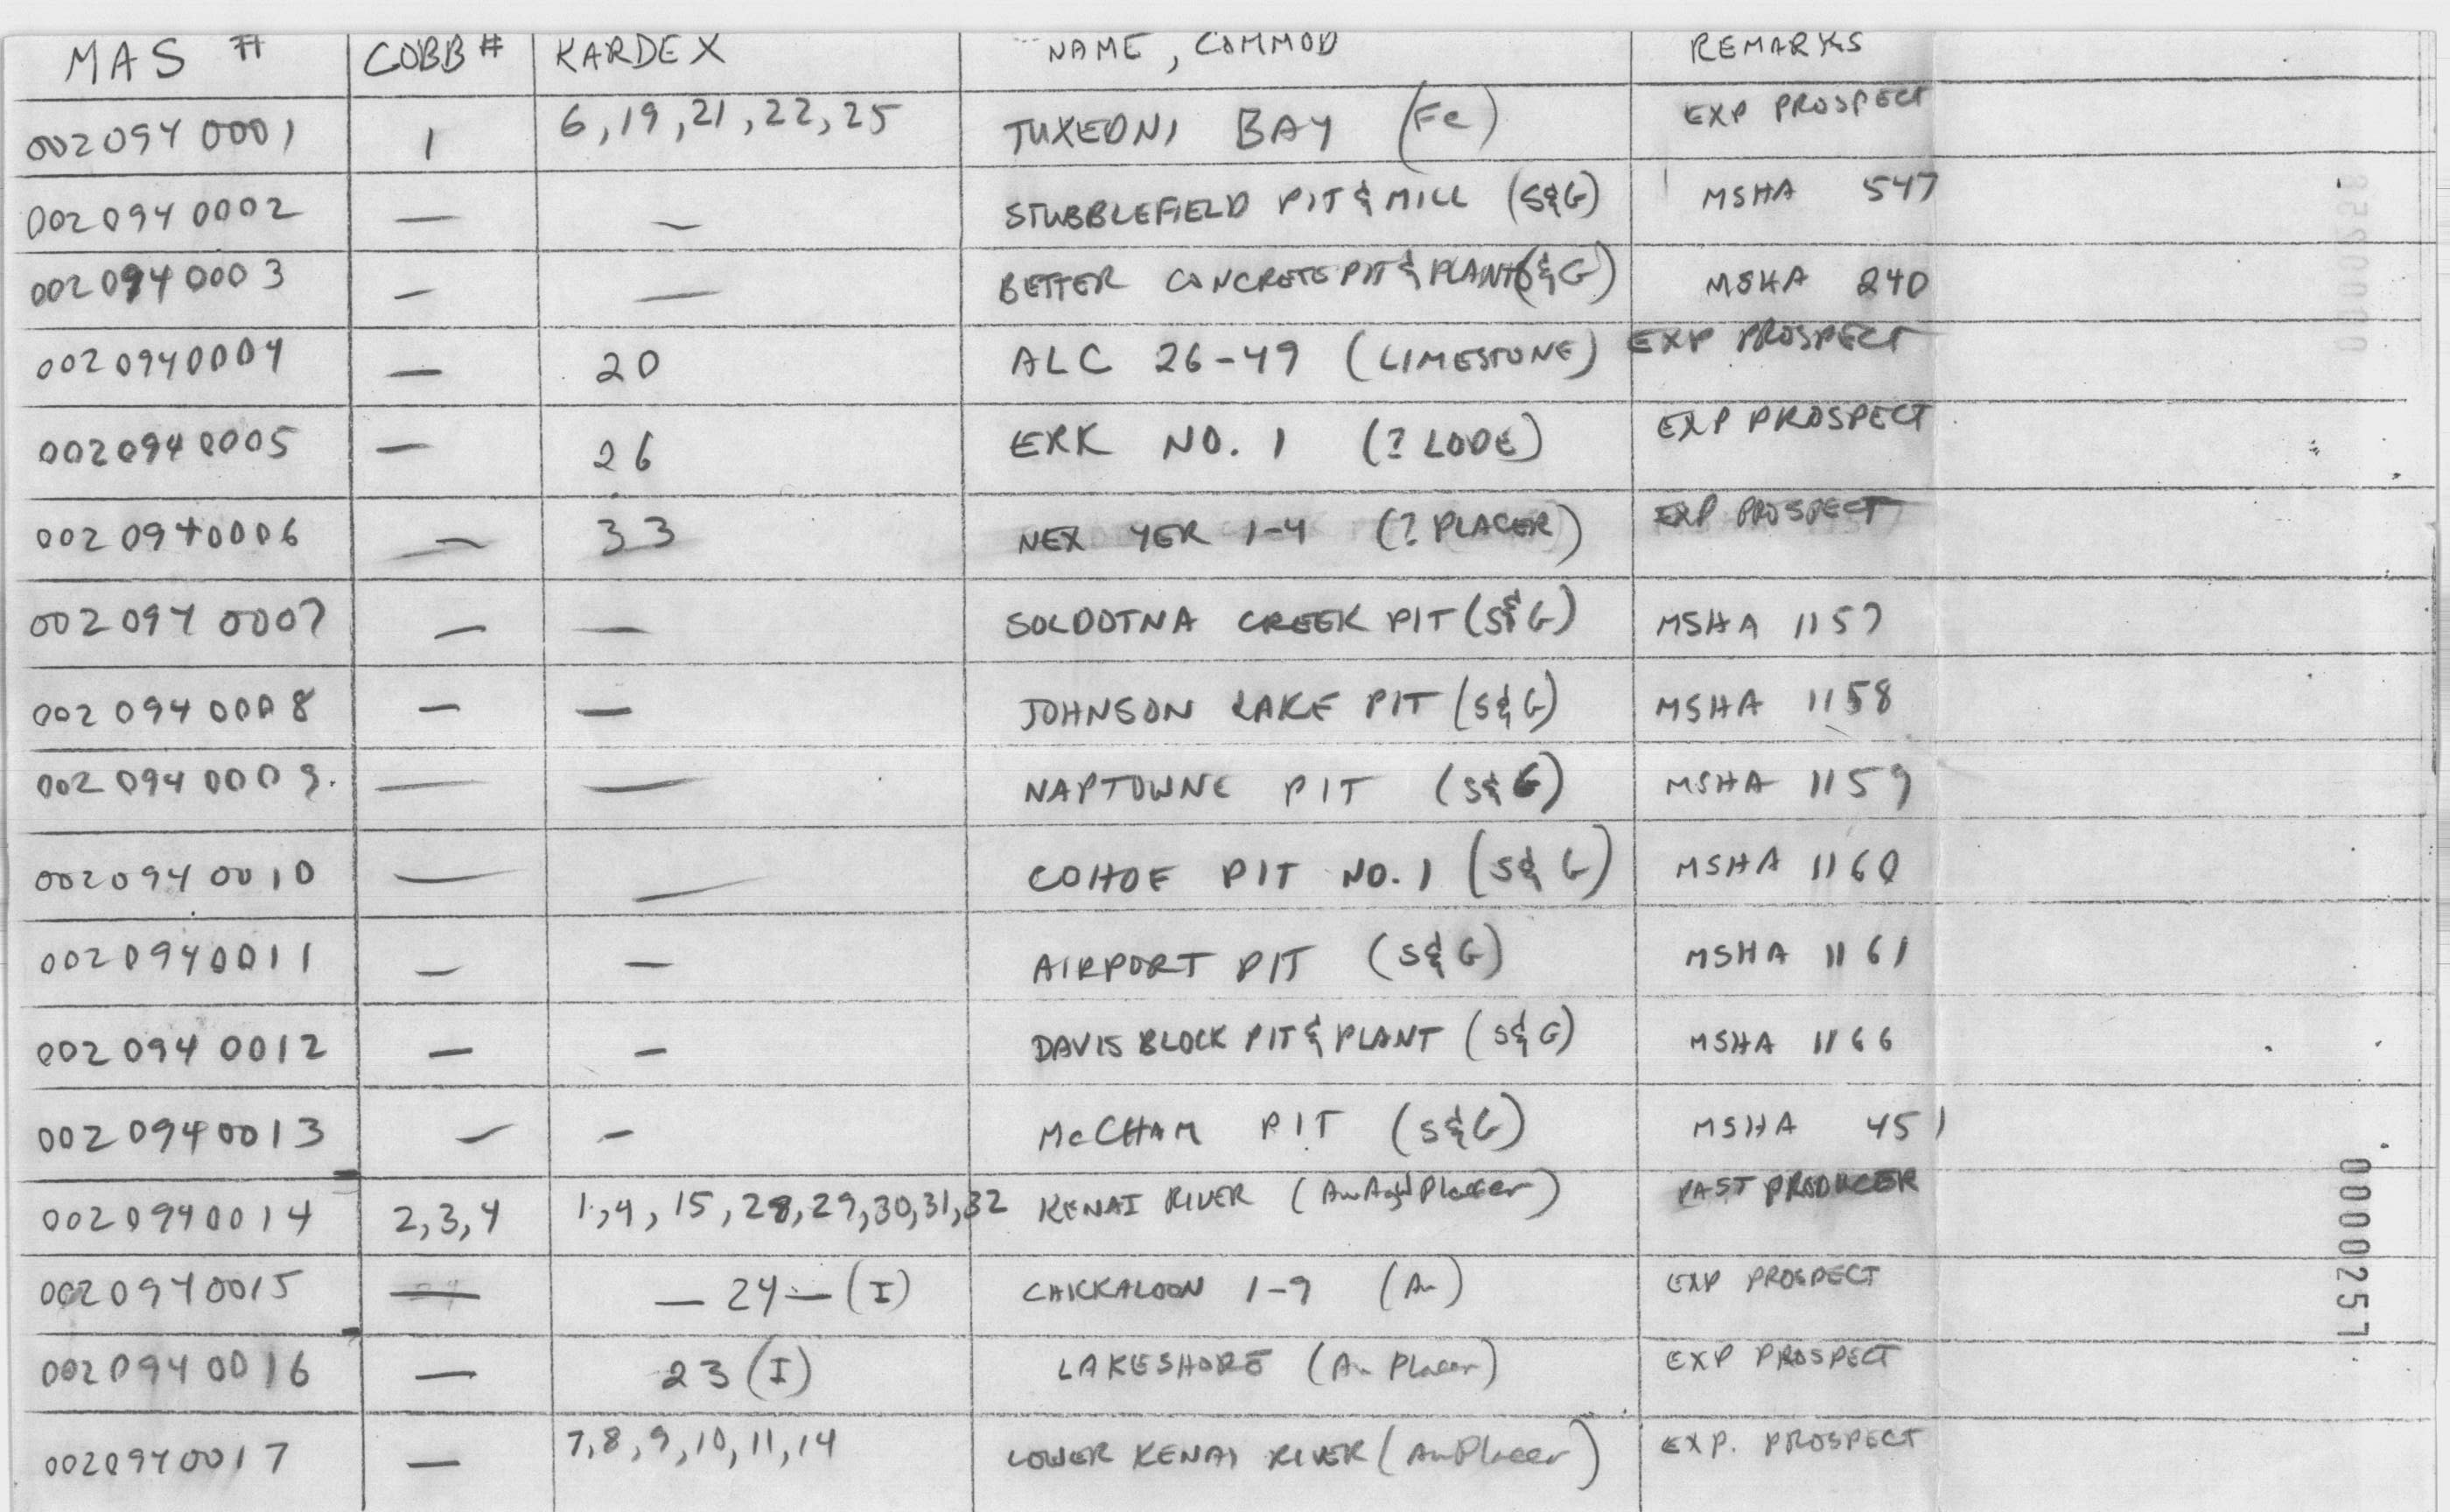 MAS # COBB # KARDEX NAME, COMMOD REMARKS
002 094 0001 1 6, 19, 21, 22, 25 TUXEDNI BAY (Fe) EXP PROSPECT
002 094 0002 — — STUBBLEFIELD PIT & MILL (S&G) MSHA 547
002 094 0003 — — BETTER CONCRETE PIT & PLANT (S&G) MSHA 240
002 094 0004 — 20 ALC 26-49 (LIMESTONE) EXP PROSPECT
002 094 0005 — 26 ERK NO. 1 (? LODE) EXP PROSPECT
002 094 0006 — 33 NEX YER 1-4 (? PLACER) EXP PROSPECT
002 094 0007 — — SOLDOTNA CREEK PIT (S&G) MSHA 1157
002 094 0008 — — JOHNSON LAKE PIT (S&G) MSHA 1158
002 094 0009. — — NAPTOWNE PIT (S&G) MSHA 1159
002 094 0010 — — COHOE PIT NO. 1 (S&G) MSHA 1160
002 094 0011 — — AIRPORT PIT (S&G) MSHA 1161
002 094 0012 — — DAVIS BLOCK PIT & PLANT (S&G) MSHA 1166
002 094 0013 — — McCHAM PIT (S&G) MSHA 451
002 094 0014 2, 3, 4 1, 4, 15, 28, 29, 30, 31, 32 KENAI RIVER (Au Placer) PAST PRODUCER
002 094 0015 — — 24 — (I) CHICKALOON 1-9 (Au) EXP PROSPECT
002 094 0016 — 23 (I) LAKESHORE (Au Placer) EXP PROSPECT
002 094 0017 — 7, 8, 9, 10, 11, 14 LOWER KENAI RIVER (Au Placer) EXP. PROSPECT
0000257